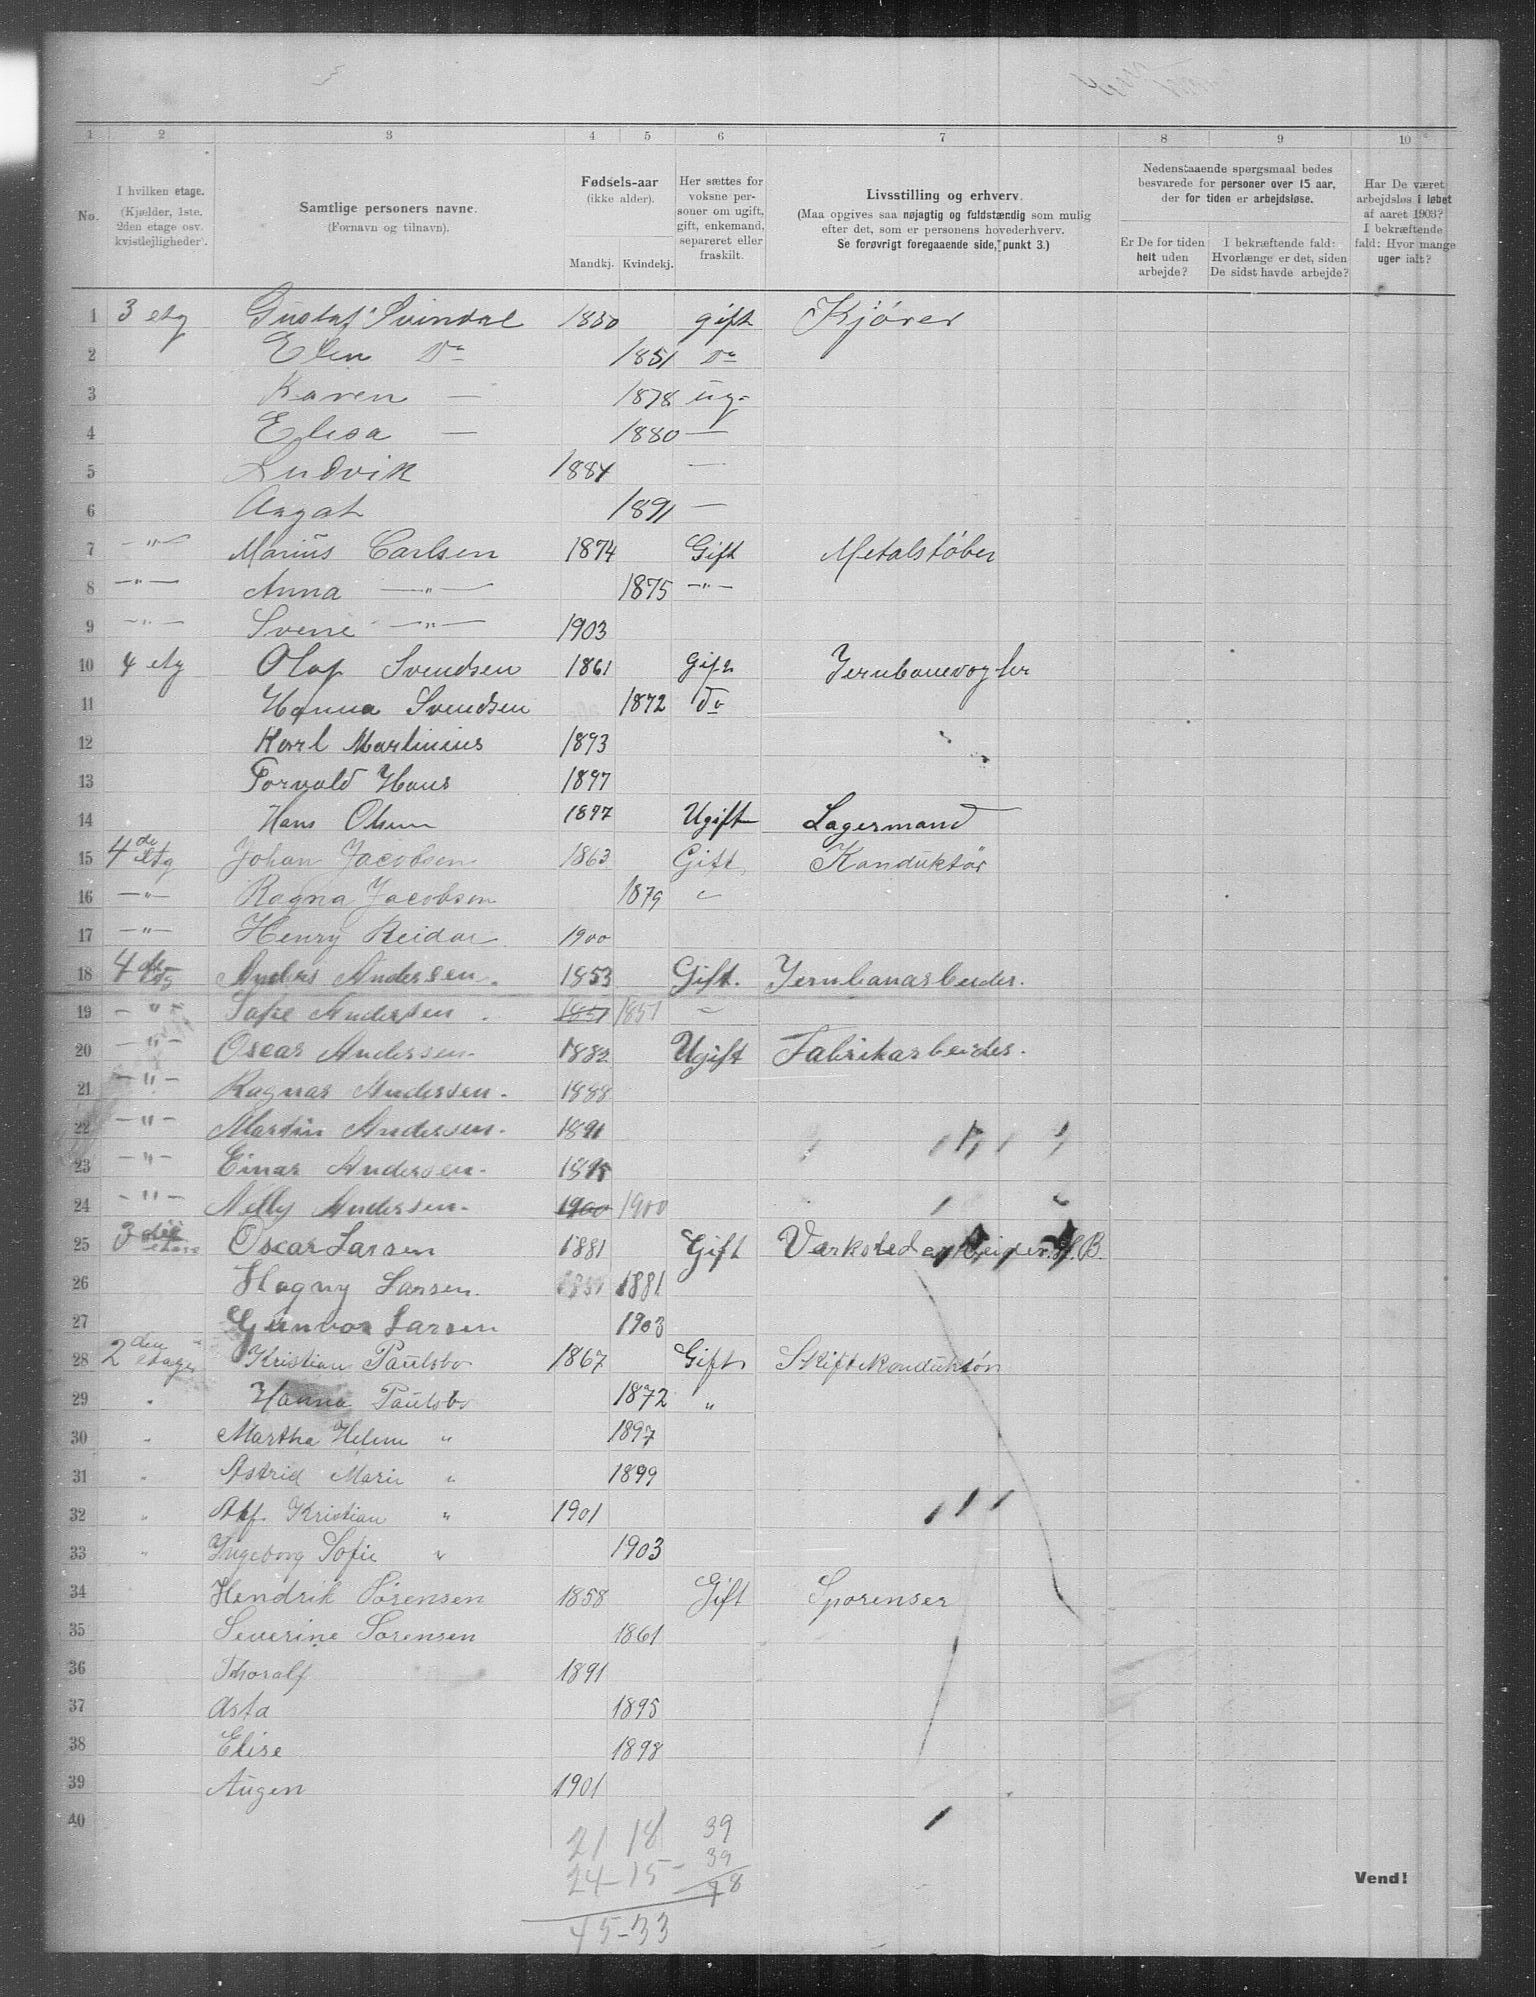 1 2 3 4 5 6 7 8 9 10
No.
I hvilken etage. (Kjælder, 1ste. 2den etage osv. kvistleiligheder).
Samtlige personers navne. (Fornavn og tilnavn).
Fødsels-aar (ikke alder). Mandkj. Kvindekj.
Her sættes for voksne personer om ugift, gift, enkemand, separeret eller fraskilt.
Livsstilling og erhverv. (Maa opgives saa nøjagtig og fuldstændig som mulig efter det, som er personens hovederhverv. Se forøvrigt foregaaende side, punkt 3.)
Nedenstaaende spørgsmaal bedes besvarede for personer over 15 aar, der for tiden er arbejdsløse.
Er De for tiden helt uden arbejde?
I bekræftende fald: Hvorlænge er det, siden De sidst havde arbejde?
Har De været arbejdsløs i løbet af aaret 1903? I bekræftende fald: Hvor mange uger ialt?
1 3 etg Gustaf Svindal 1850 gift Kjører
2 Elen Do 1851 Do
3 Karen — 1878 ug-
4 Elisa — 1880 —
5 Ludvik 1884 —
6 Aagat 1891 —
7 —"— Marius Carlsen 1874 Gift Metalstøber
8 —"— Anna —"— 1875 —"—
9 —"— Svene —"— 1903
10 4 etg Olaf Svendsen 1861 Gift Jernbanevogter
11 Hanna Svendsen 1872 Do
12 Karl Martinius 1893
13 Torvald Hans 1897
14 Hans Olsen 1877 Ugift Lagermand
15 4de etg Johan Jacobsen 1863 Gift Konduktør
16 —"— Ragna Jacobsen 1879 "
17 —"— Henry Reidar 1900
18 4de etg Anders Andersen. 1853 Gift. Jernbanarbeider.
19 —"— Sofie Andersen. 1851 1851 "
20 —"— Oscar Andersen. 1882 Ugift Fabrikarbeider.
21 —"— Ragnar Andersen. 1888
22 —"— Martin Andersen. 1891
23 —"— Einar Andersen. 1895
24 —"— Nelly Andersen. 1900 1900
25 3die etage Oscar Larsen 1881 Gift Værkstedarbeider H.B.
26 Hagny Larsen. 1881 1881
27 Gunvor Larsen 1903
28 2den etage Kristian Paulsbo 1867 Gift Skiftekonduktør
29 " Hanna Paulsbo 1872 "
30 " Martha Helene " 1897
31 " Astrid Marie " 1899
32 " Alf. Kristian " 1901
33 " Ingeborg Sofie " 1903
34 Hendrik Sørensen 1858 Gift Sporenser
35 Severine Sørensen 1861
36 Thoralf 1891
37 Asta 1895
38 Elise 1898
39 Augen 1901
40
21 18 39
24-15- 39
78
45-33
Vend!